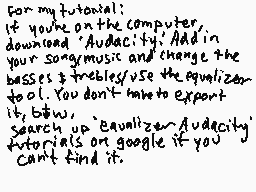 For my tutorial:
if you're on the computer,
download 'Audacity.' Add in
your song/music and change the
basses & trebles/use the equalizer
tool. You don't have to export
it, btw,
search up 'equalizer Audacity'
tutorials on google if you
can't find it.